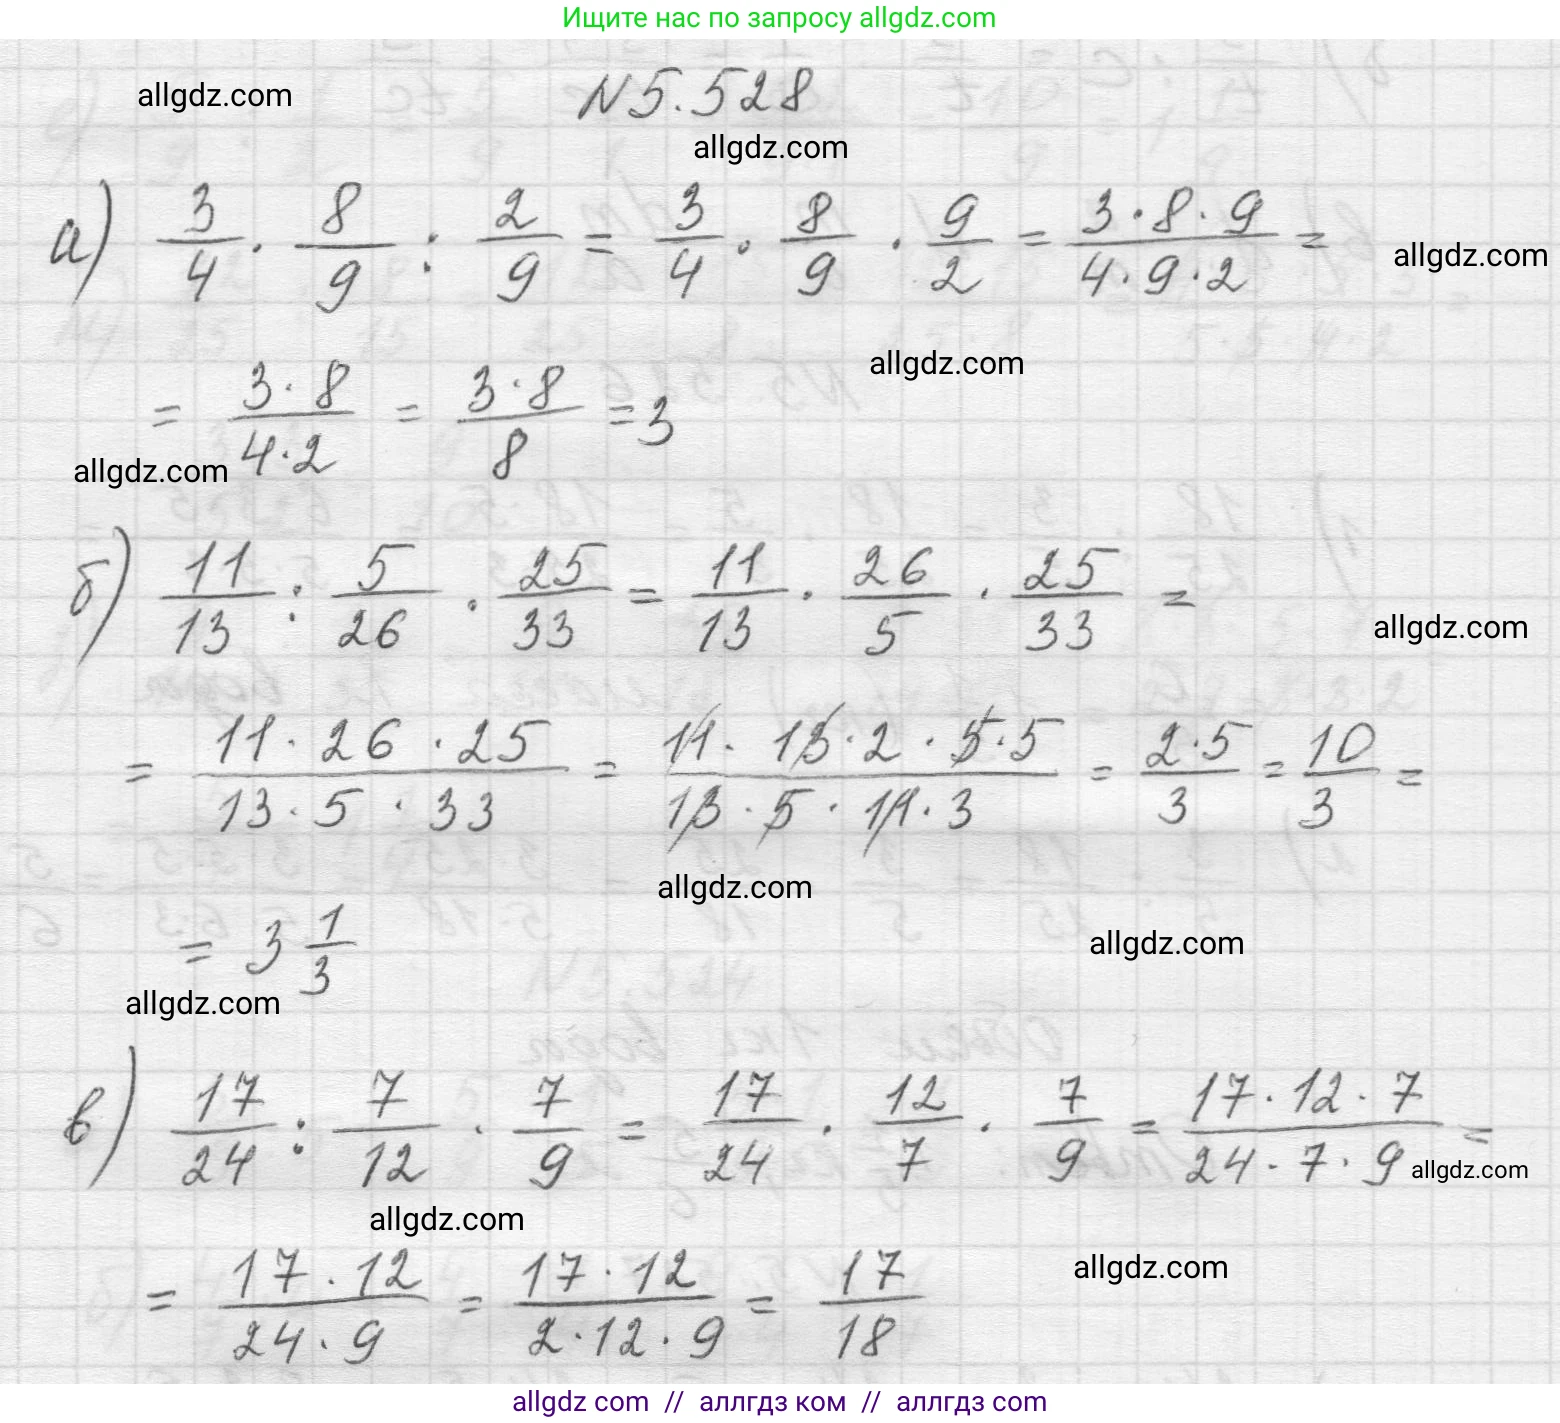 Ищите нас по запросу allgdz.com
allgdz.com
N 5.528
allgdz.com
а) 3/4 · 8/9 : 2/9 = 3/4 · 8/9 · 9/2 = 3·8·9/4·9·2 =
allgdz.com
allgdz.com
= 3·8/4·2 = 3·8/8 = 3
allgdz.com
б) 11/13 : 5/26 · 25/33 = 11/13 · 26/5 · 25/33 =
allgdz.com
= 11·26·25/13·5·33 = 11·13·2·5·5/13·5·11·3 = 2·5/3 = 10/3 =
allgdz.com
allgdz.com
= 3 1/3
allgdz.com
в) 17/24 : 7/12 · 7/9 = 17/24 · 12/7 · 7/9 = 17·12·7/24·7·9 =
allgdz.com
allgdz.com
allgdz.com
= 17·12/24·9 = 17·12/2·12·9 = 17/18
allgdz com // аллгдз ком // аллгдз com